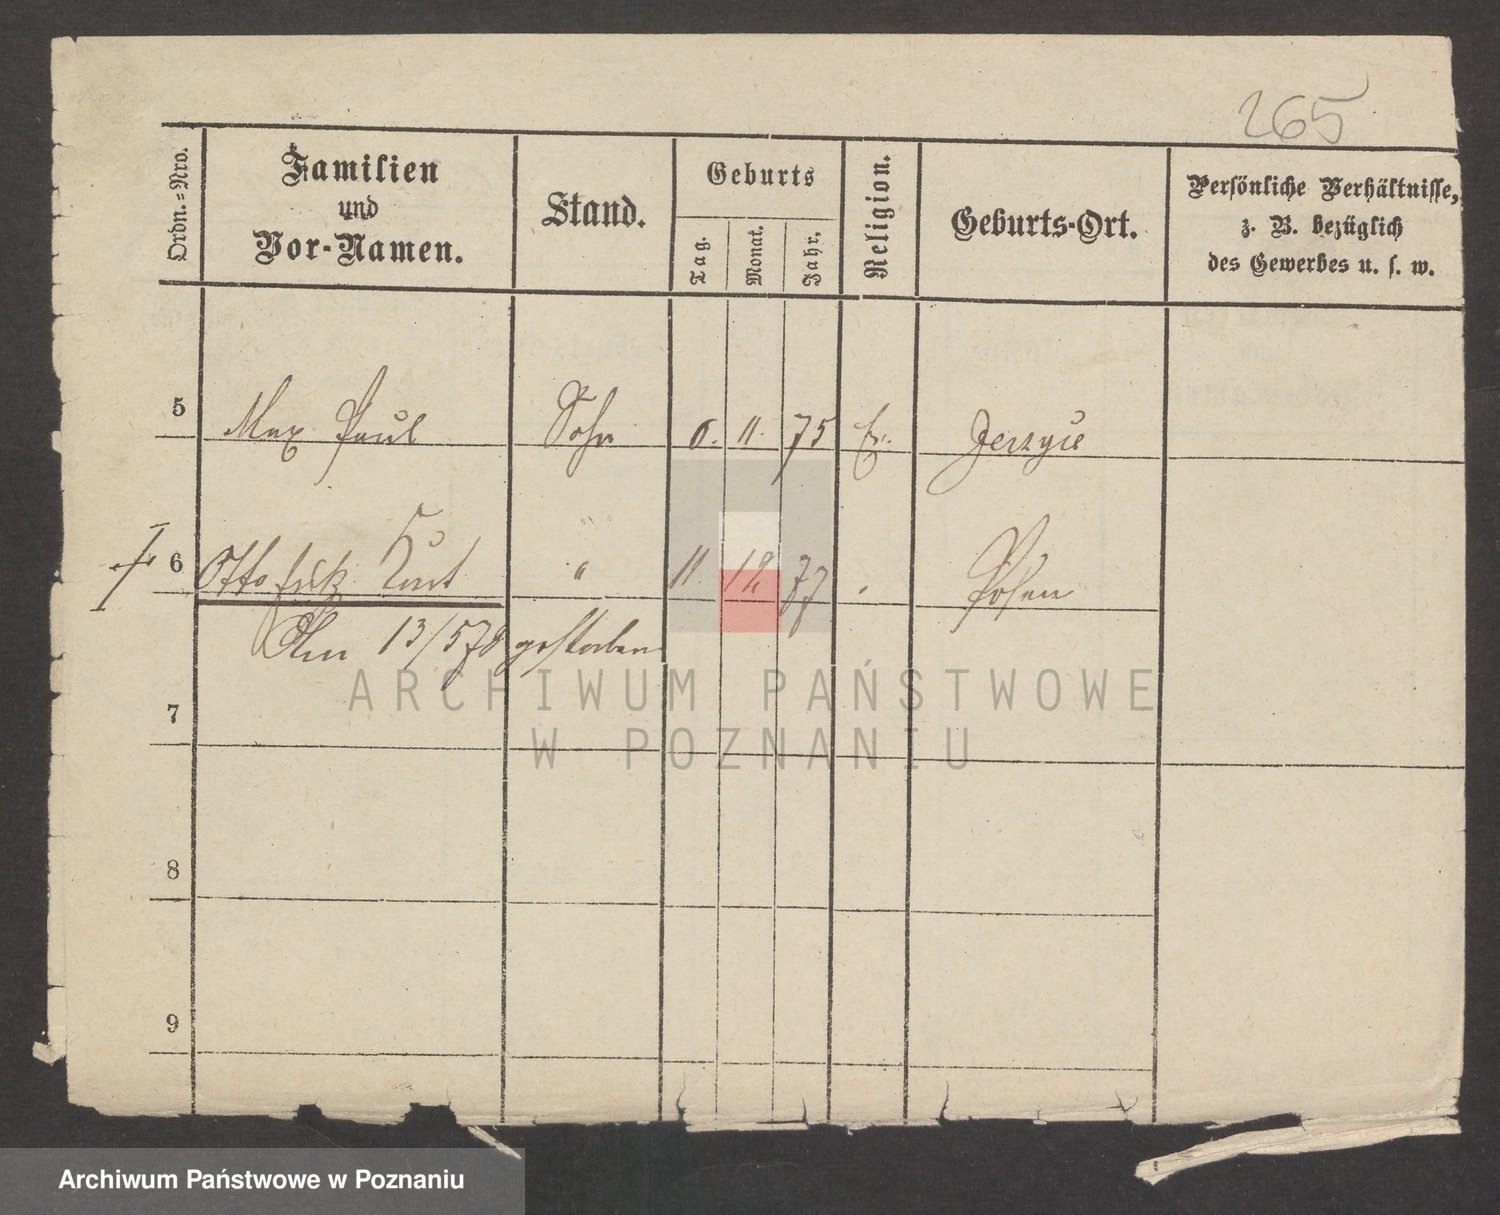 265
Ordn.-Nro.
Familien
und
Vor-Namen.
Stand.
Geburts
Tag.
Monat.
Jahr.
Religion.
Geburts-Ort.
Persönliche Verhältnisse,
z. B. bezüglich
des Gewerbes u. s. w.
5 Max Paul Sohn 6. 11. 75 Ev. Jerzyce
6 Otto Fritz Kurt " 11. 12. 77 " Posen
Am 13/5 78 gestorben
7
8
9
ARCHIWUM PAŃSTWOWE
W POZNANIU
Archiwum Państwowe w Poznaniu